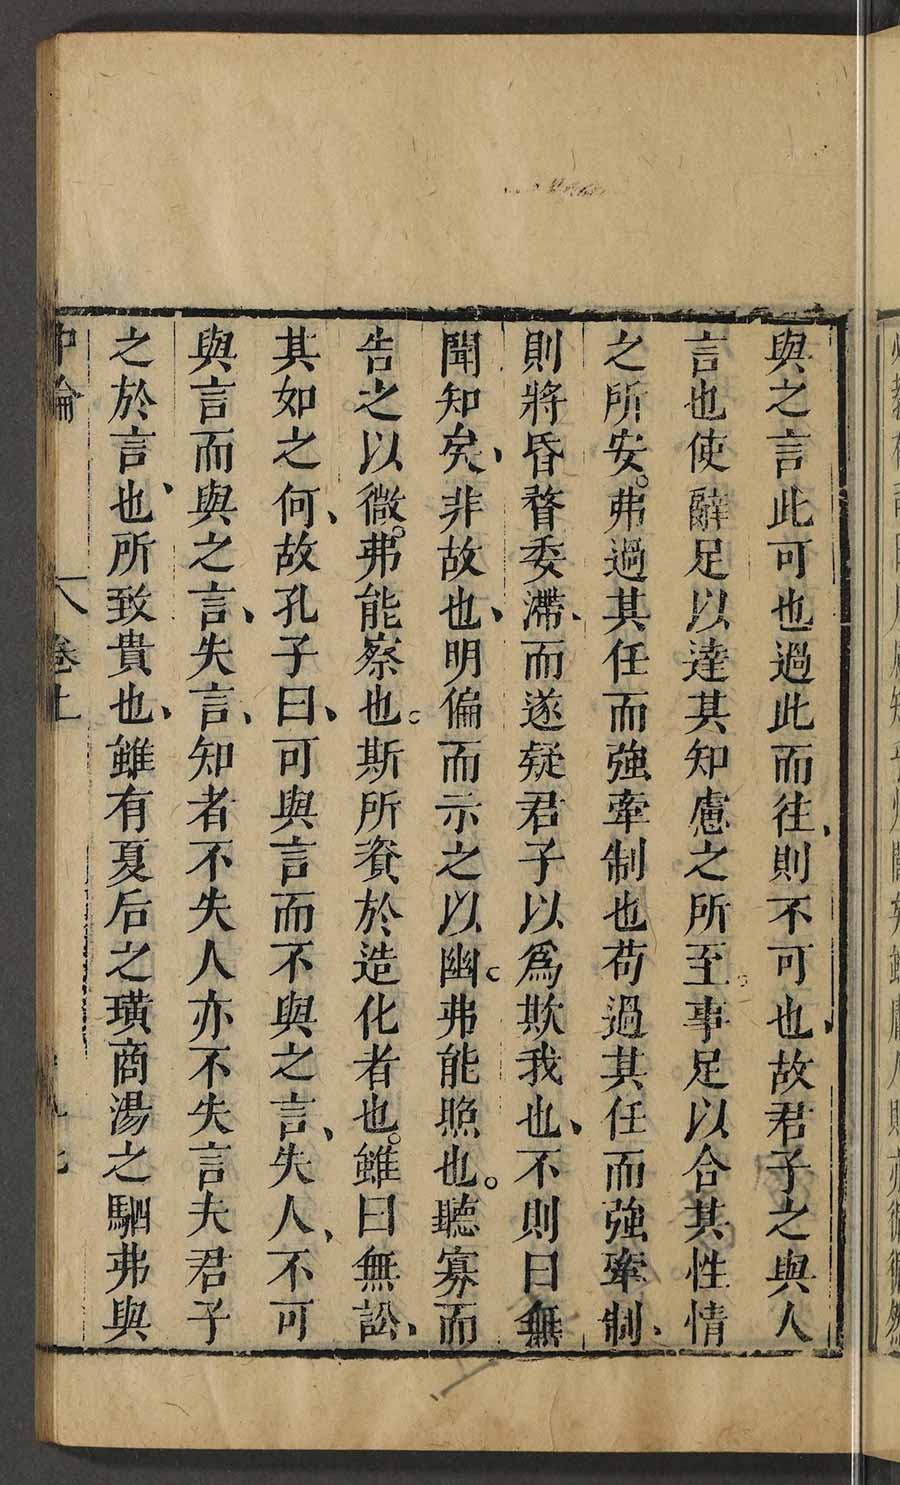 與之言此可也過此而往、則不可也、故君子之與人
言也使辭足以達其知慮之所至。事足以合其性情
之所安。弗過其任而強牽制也苟過其任而強牽制、
則將昏瞀委滯、而遂疑君子以爲欺我也、不則曰無
聞知矣、非故也、明偏而示之以幽。弗能照也。聽寡而
告之以微。弗能察也。斯所資於造化者也。雖曰無訟、
其如之何、故孔子曰、可與言而不與之言、失人、不可
與言而與之言、失言、知者不失人亦不失言夫君子
之於言也、所致貴也、雖有夏后之璜商湯之駟弗與
中論 卷上